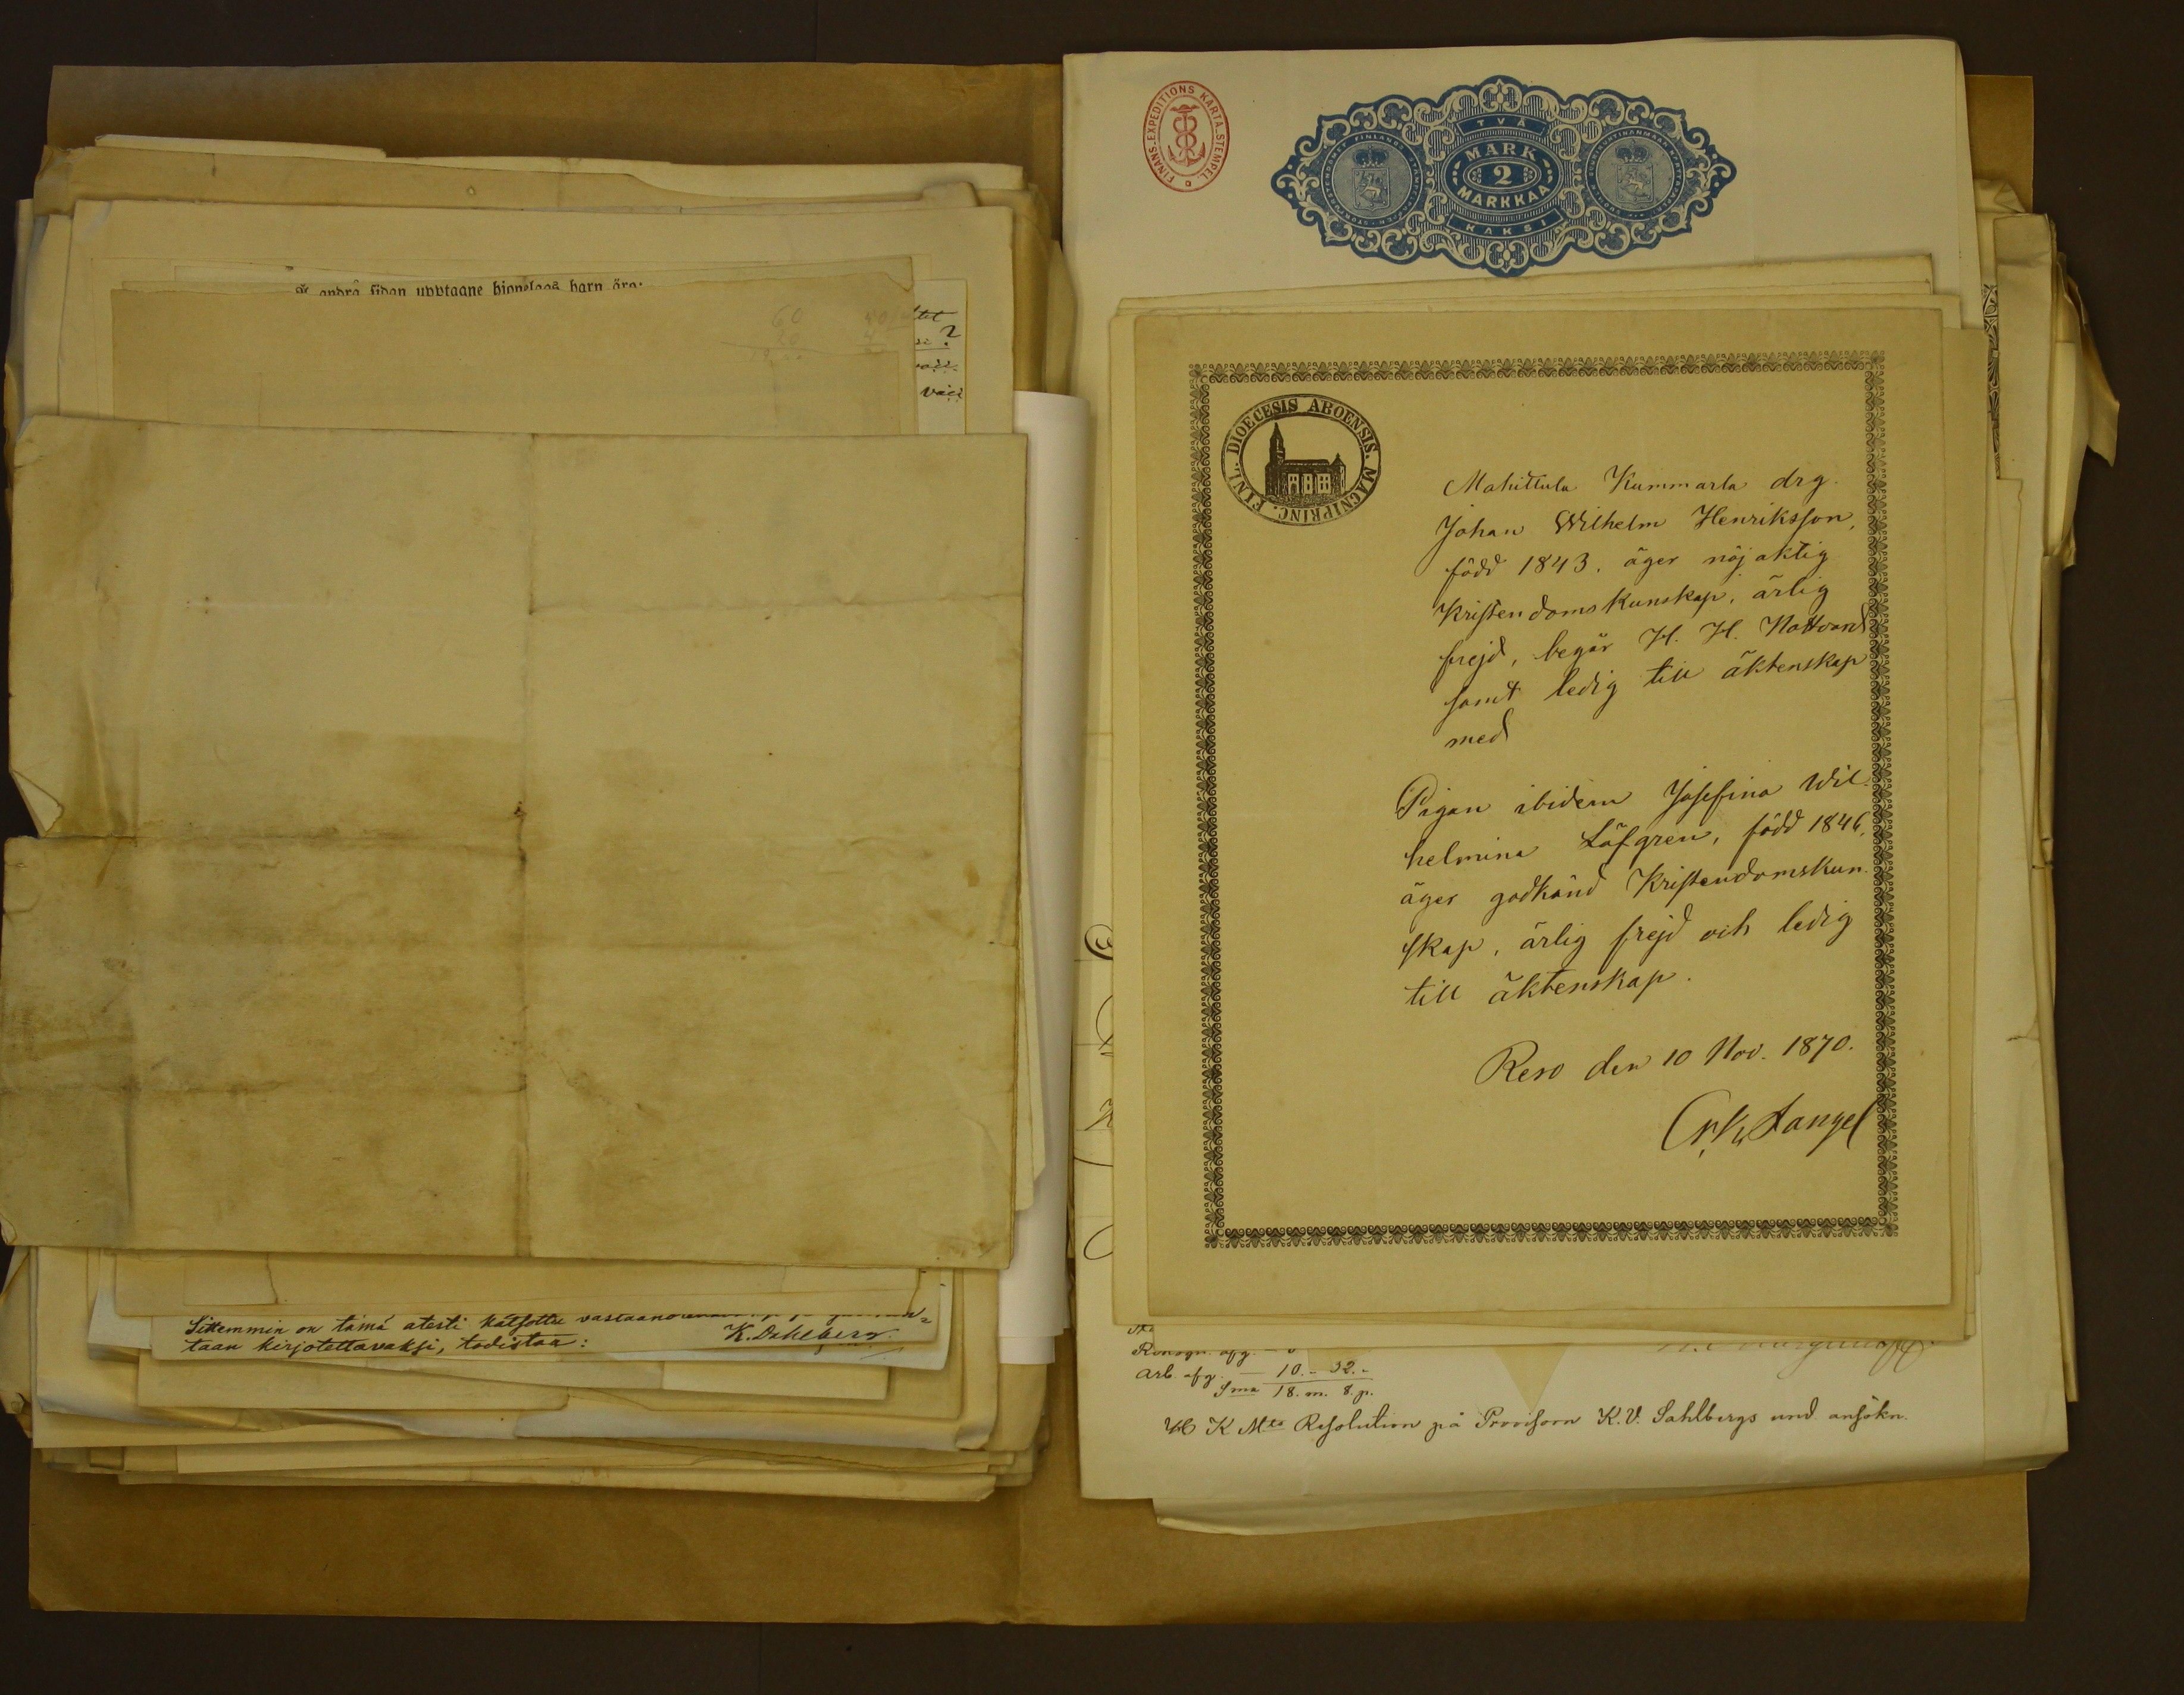 å andra sidan upptagne hjonelags barn äro:
60
?
Sittemmin on tämä atesti katsottu
taan kirjotettavaksi, todistaa:
K. Dahlberg.
FINANS-EXPEDITIONS KARTA.STEMPEL.
TVÅ
MARK
2
MARKKA
KAKSI
FINL. DIOECESIS ABOENSIS. MAGNIPRINC.
Mahittula Kummarla drg.
Johan Wilhelm Henriksson,
född 1843. äger nöjaktig
Kristendomskunskap, ärlig
frejd, begär H. H. Nattvard
samt ledig till äktenskap
med
Pigan ibidem Josefina Wil-
helmina Löfgren, född 1846,
äger godkänd Kristendomskun-
skap, ärlig frejd och ledig
till äktenskap.
Reso den 10 Nov. 1870.
Langel
Arb. afg. — 10. - 32. -
Sma 18. m. 8. p.
K Mts Resolution på Provisorn K.V. Sahlbergs und. ansökn.